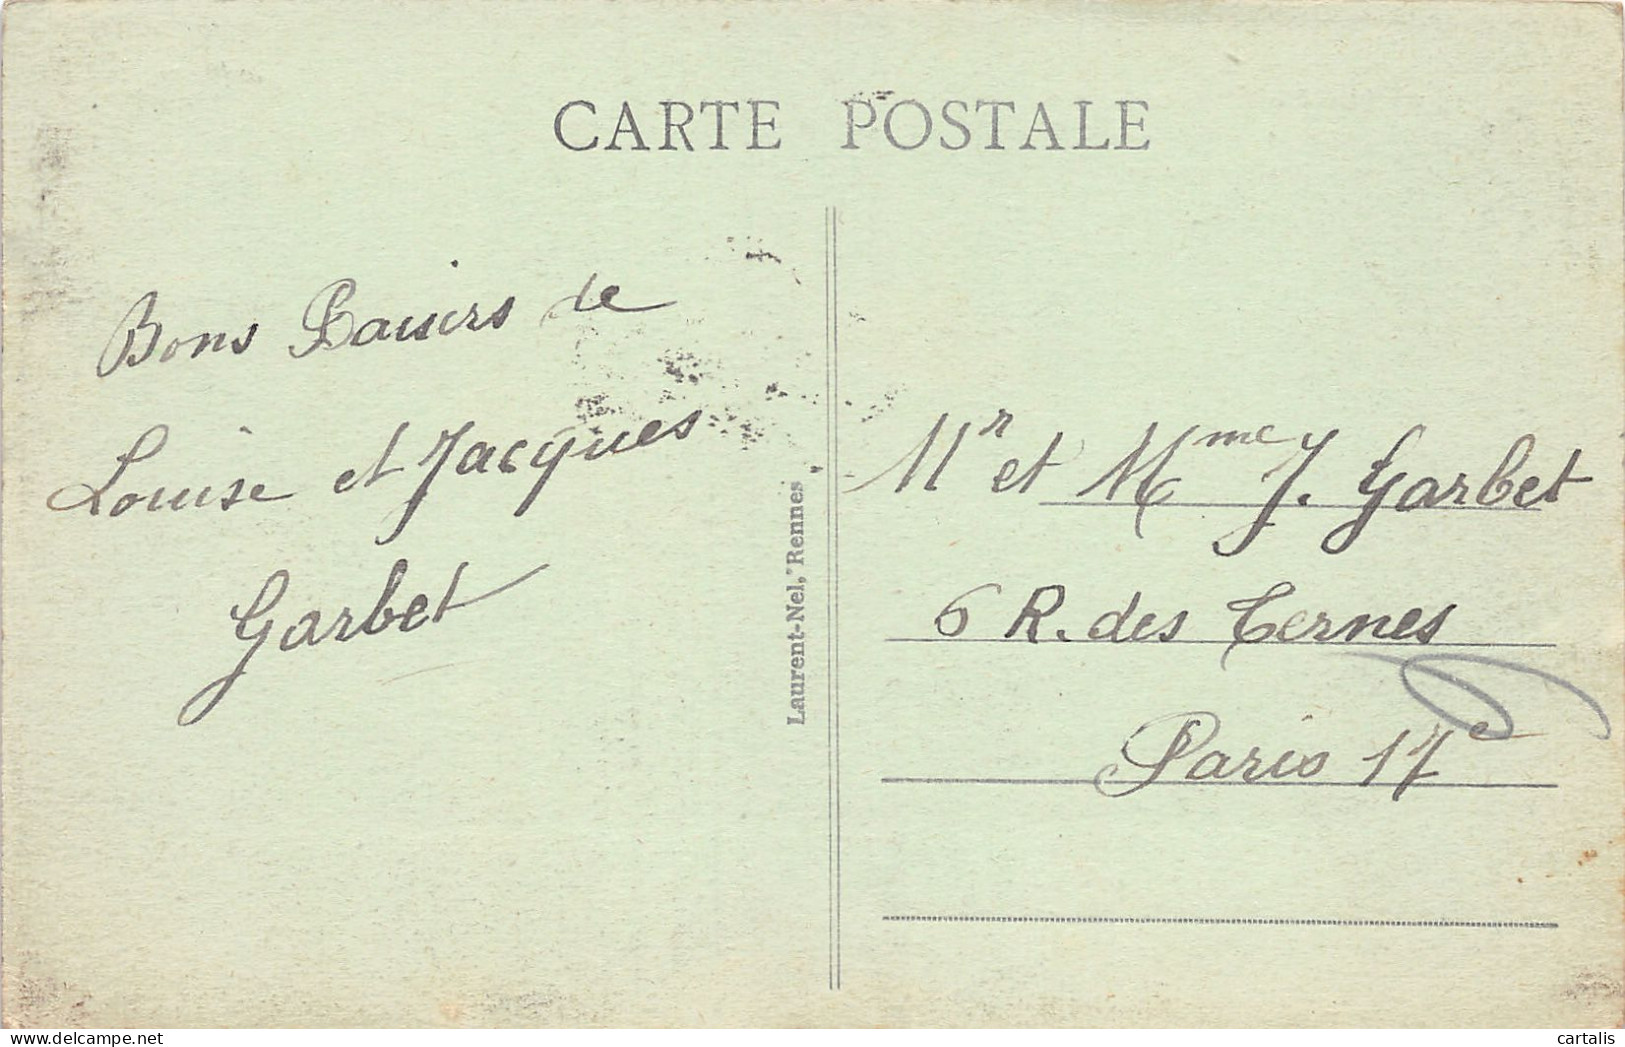 CARTE POSTALE
Bons Baisers de
Louise et Jacques
Garbet
Laurent-Nel, Rennes
Mr et Mme J. Garbet
6 R. des Ternes
Paris 17e
cartalis